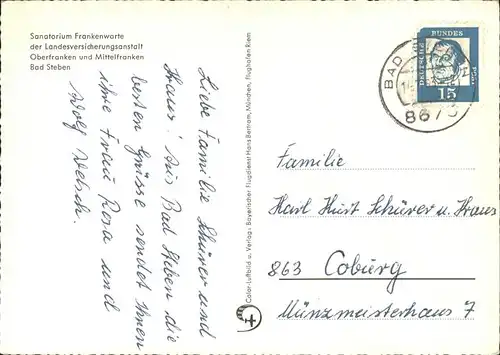 Sanatorium Frankenwarte
der Landesversicherungsanstalt
Oberfranken und Mittelfranken
Bad Steben
Liebe Familie Schürer und
Kraus! Aus Bad Steben die
besten Grüsse sendet Ihnen
ihre Frau Rosa und
Wolf Welsch.
Color-Luftbild u. Verlag: Bayerischer Flugdienst Hans Bertram, München, Flughafen Riem
DEUTSCHE BUNDES POST
15
BAD
867
Familie
Karl Kurt Schürer u. Kraus
863 Coburg
Münzmeisterhaus 7